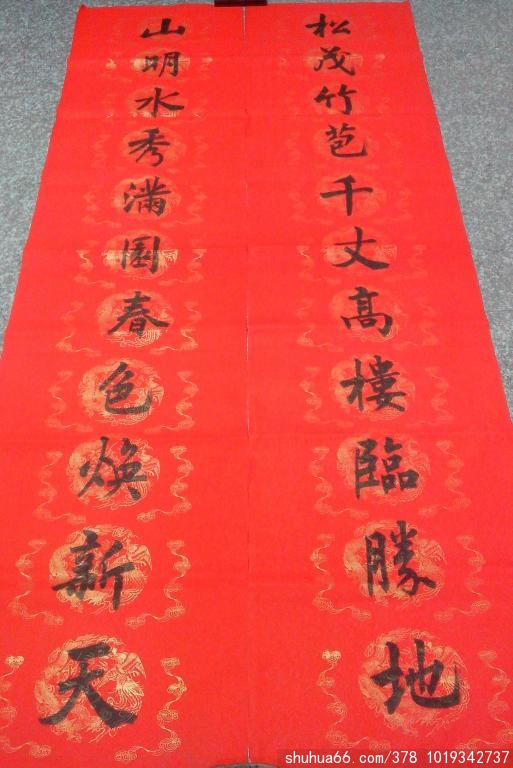 松茂竹苞千丈高樓臨勝地
山明水秀滿園春色焕新天
shuhua66.com/378 1019342737